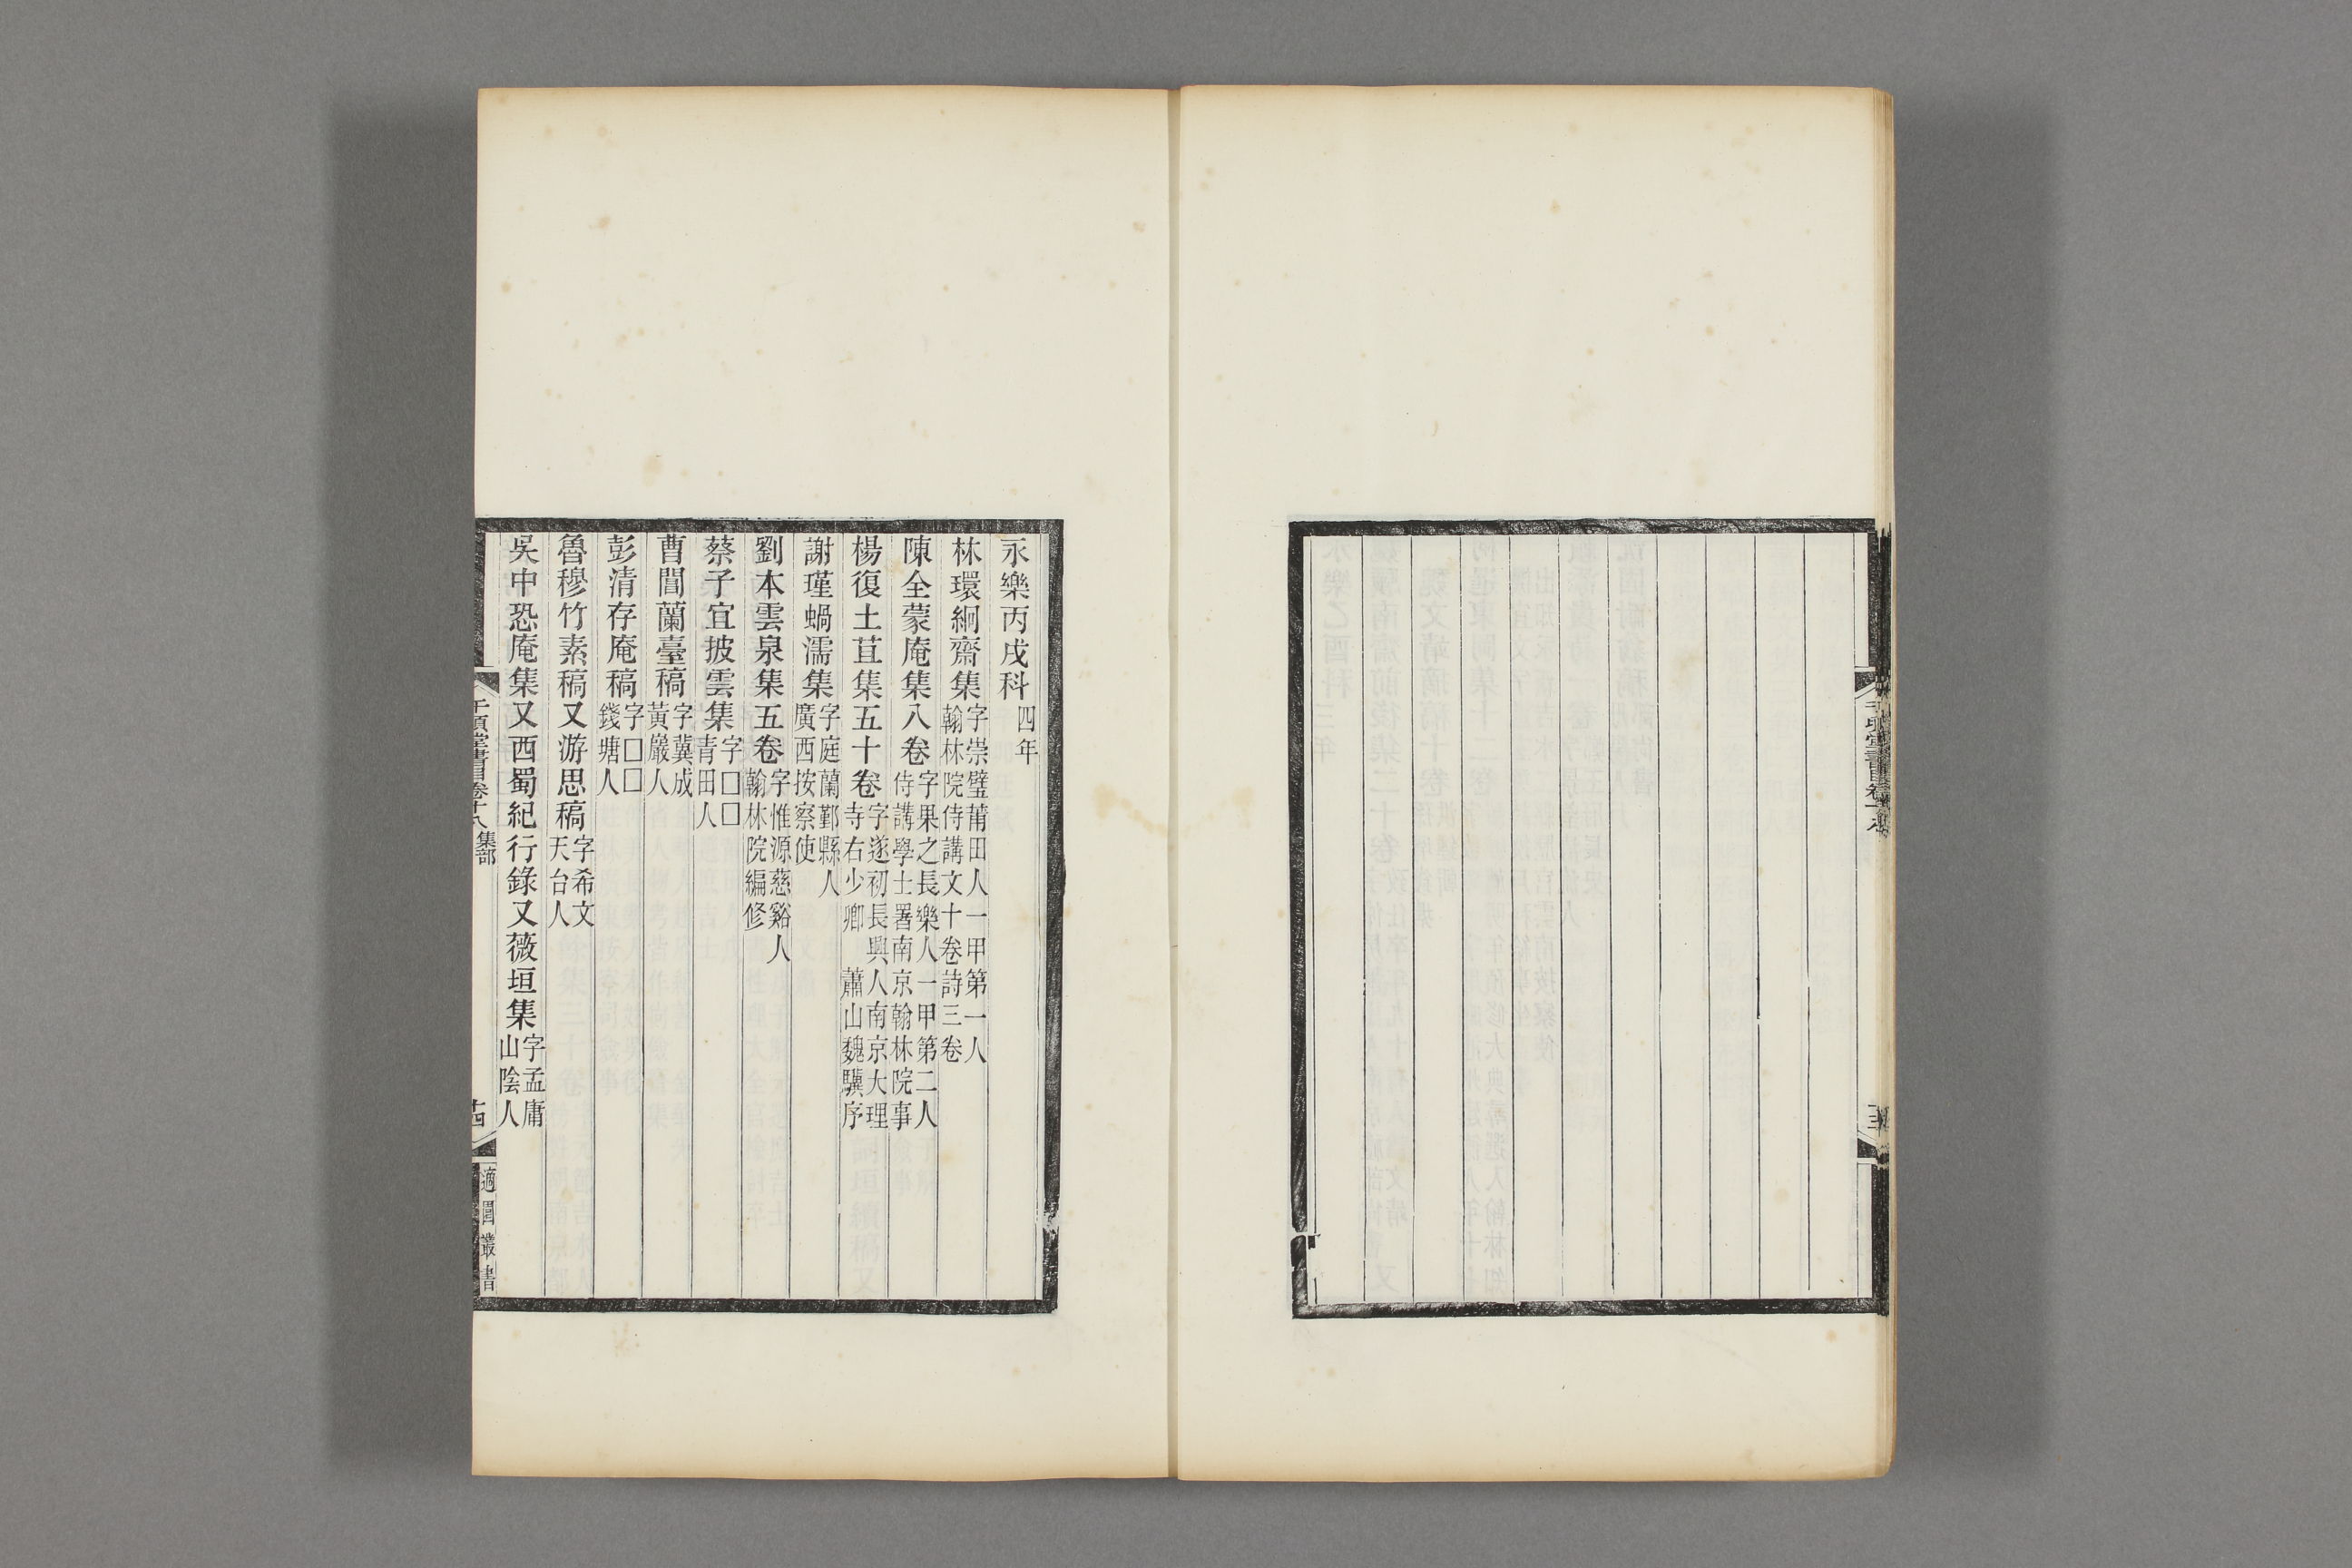 永樂丙戌科四年
林環絅齋集字崇璧莆田人一甲第一人翰林院侍講文十卷詩三卷
陳全蒙庵集八卷字果之長樂人一甲第二人侍講學士署南京翰林院事
楊復土苴集五十卷字遂初長興人南京大理寺右少卿 蕭山魏驥序
謝瑾蝸濡集字庭蘭鄞縣人廣西按察使
劉本雲泉集五卷字惟源慈谿人翰林院編修
蔡子宜披雲集字□□青田人
曹閶蘭臺稿字冀成黃巖人
彭清存庵稿字□□錢塘人
魯穆竹素稿又游思稿字希文天台人
吳中恐庵集又西蜀紀行錄又薇垣集字孟庸山陰人
千頃堂書目卷十八 集部
十四
適園叢書